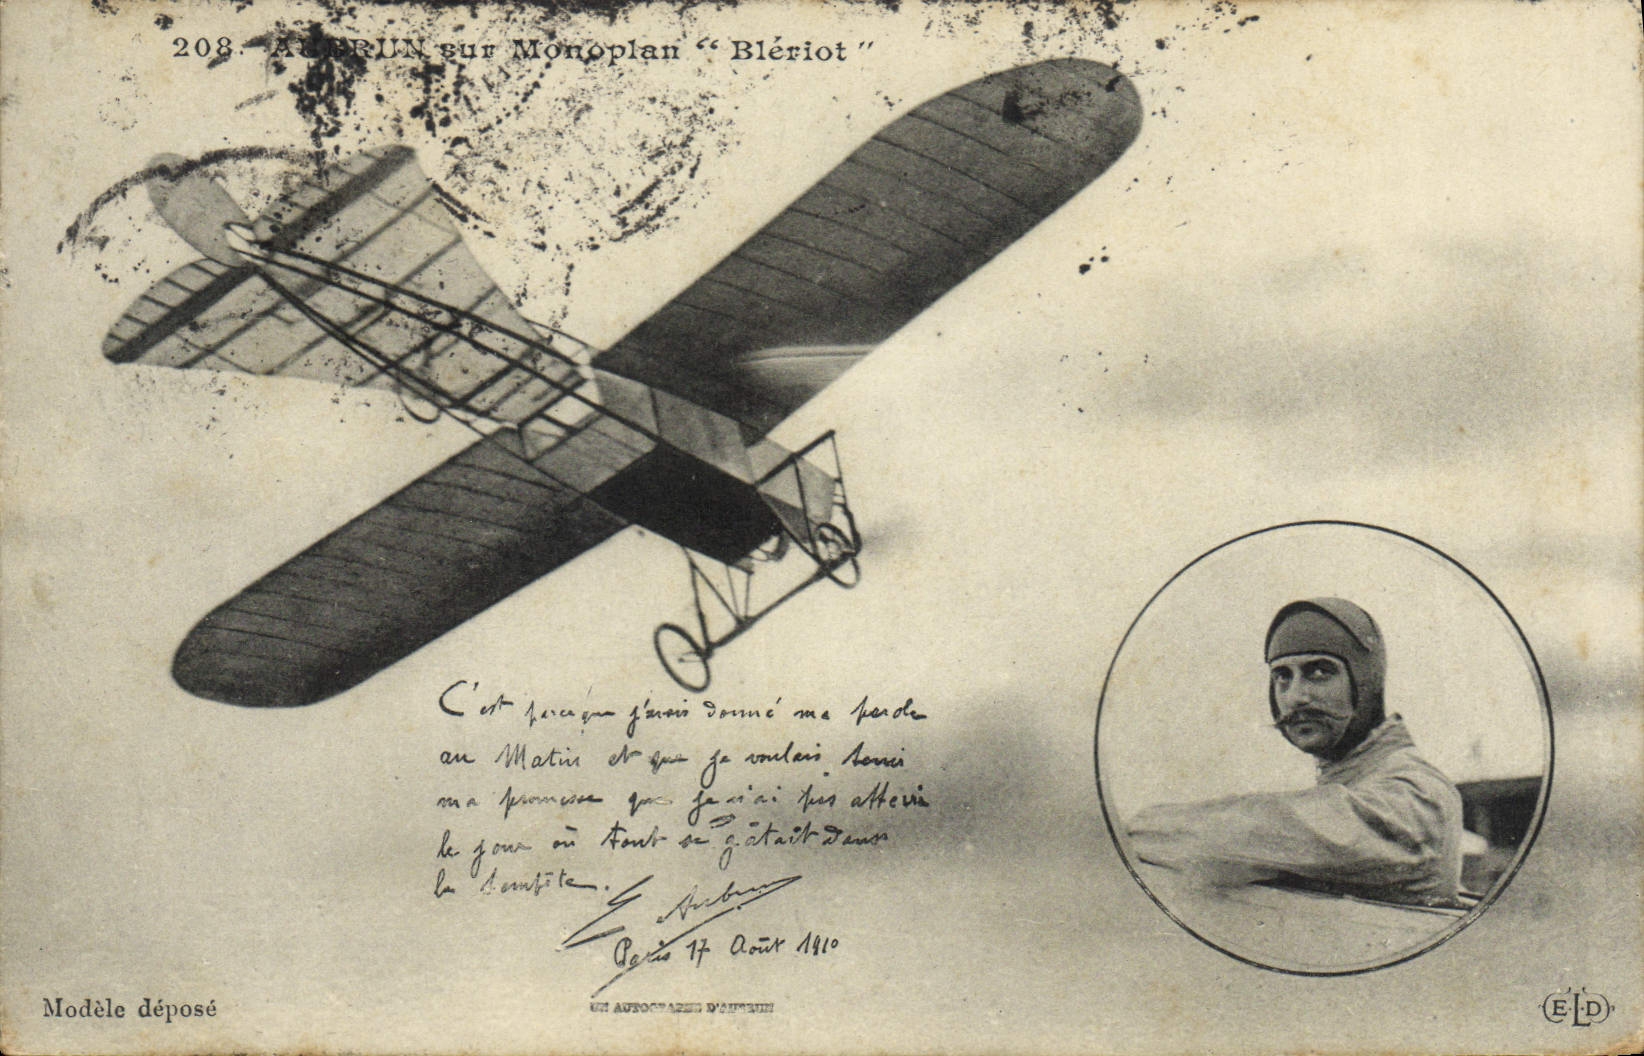 208. AUBRUN sur Monoplan “ Blériot ”
C'est parceque j'avais donné ma parole
au Matin et que je voulais tenir
ma promesse que je n'ai pas atterri
le jour où tout se gâtait dans
la tempête.
E Aubrun
Paris 17 Août 1910
UN AUTOGRAPHE D'AUBRUN
Modèle déposé
E.L.D